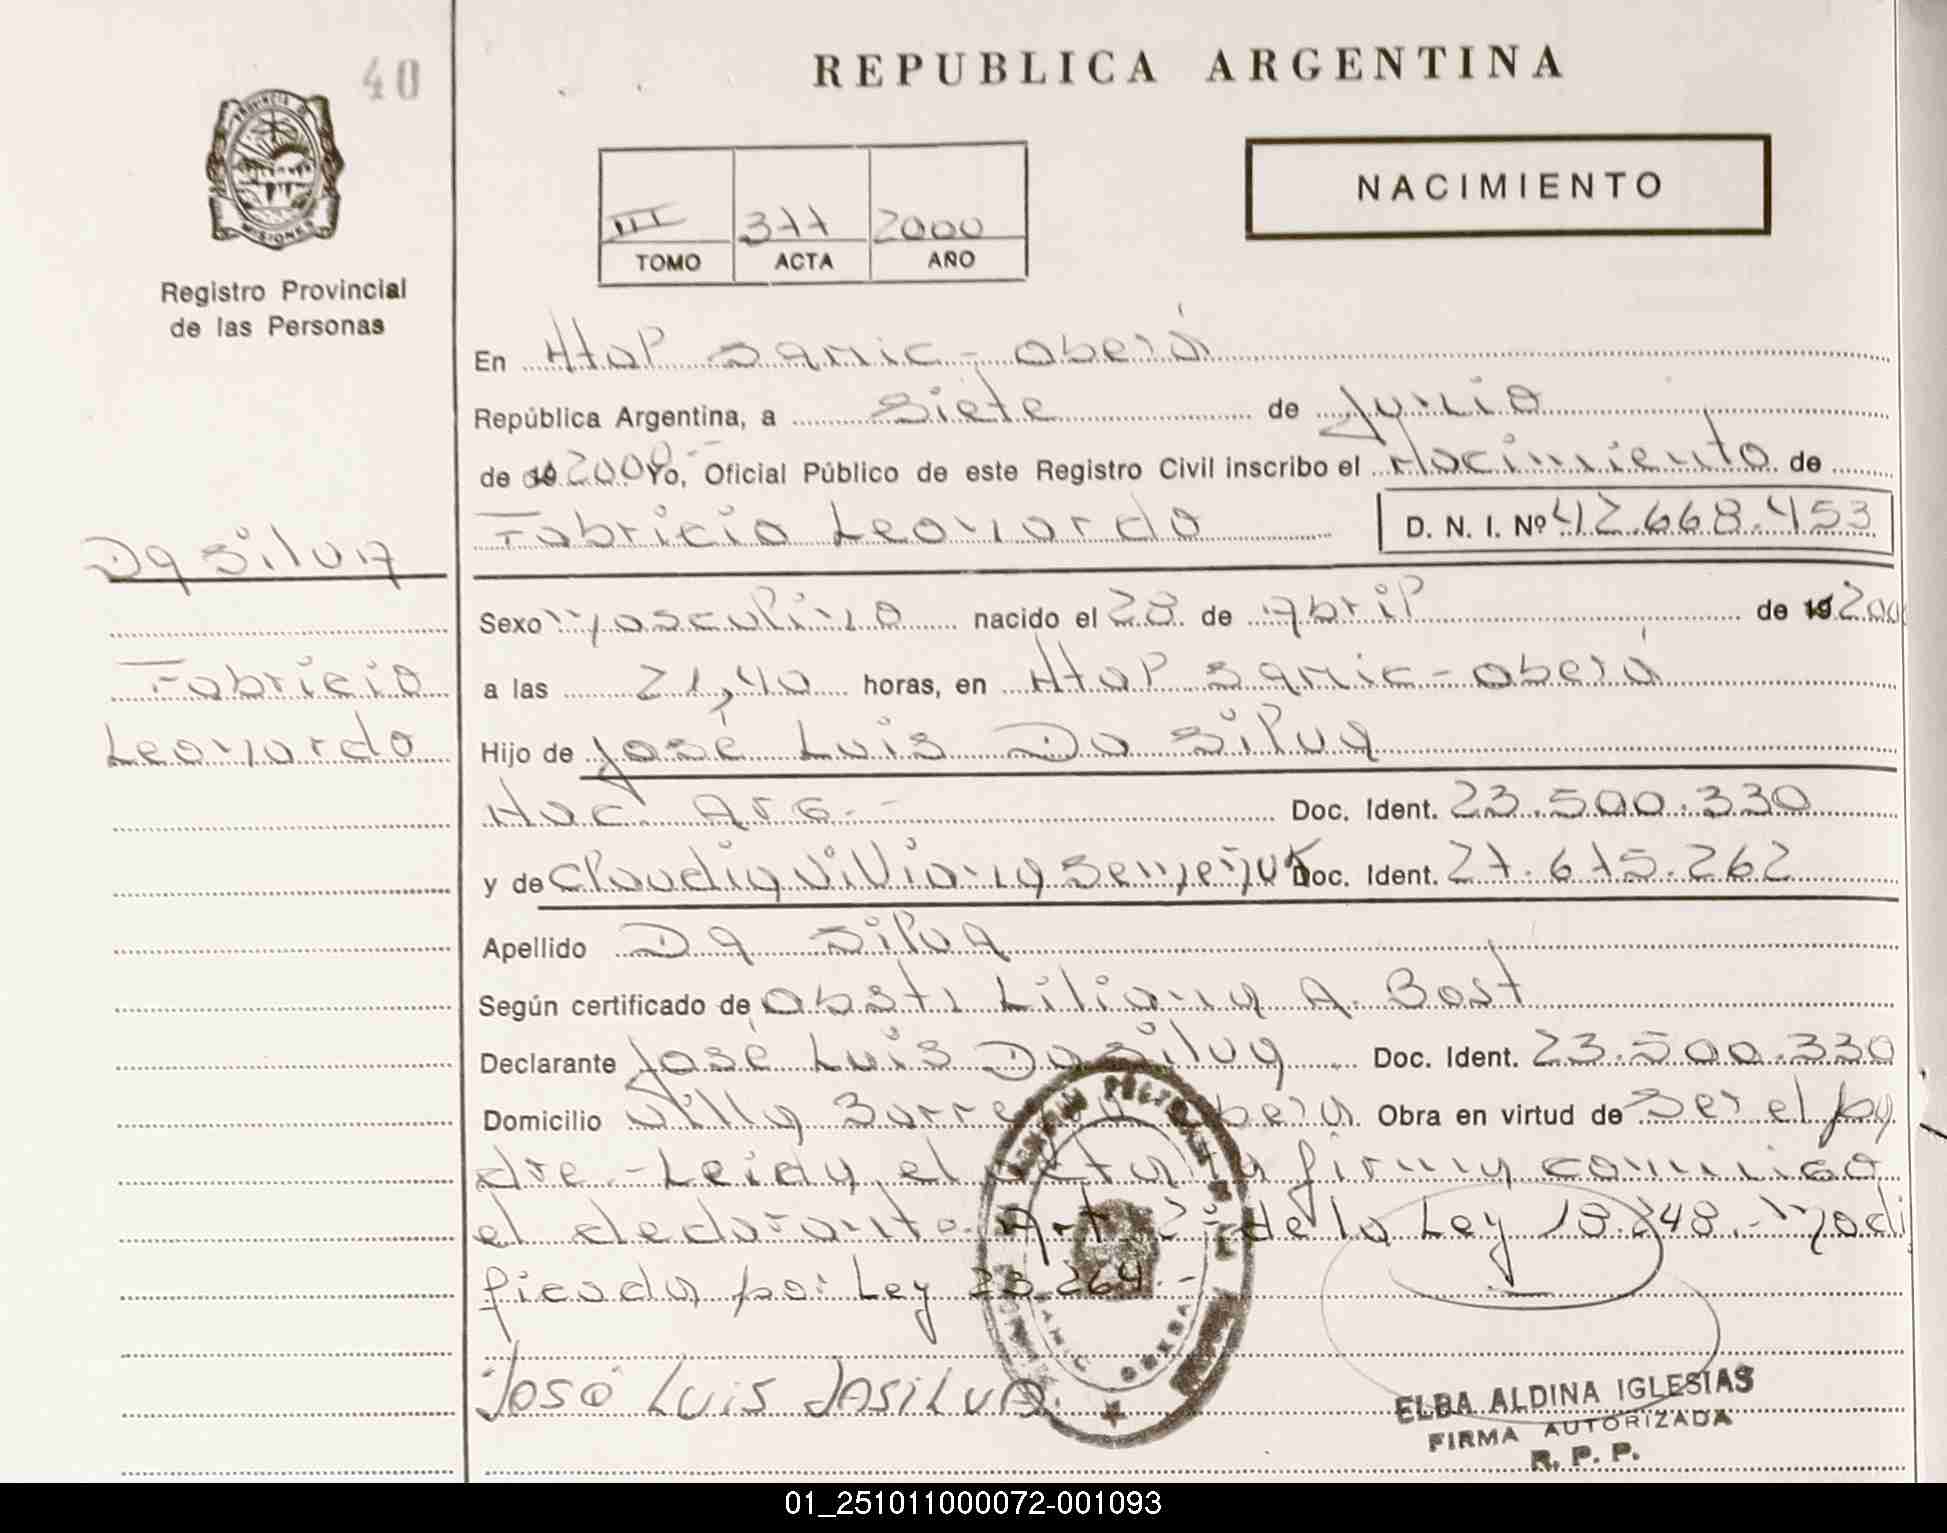 40
REPUBLICA ARGENTINA
PROVINCIA D
MISIONES
Registro Provincial
de las Personas
NACIMIENTO
III 377 2000
TOMO ACTA AÑO
En Htal Samic - Oberá
República Argentina, a Siete de Junio
de 19 2000 - Yo, Oficial Público de este Registro Civil inscribo el Nacimiento de
Fabricio Leonardo D. N. I. Nº 42.668.453
Da Silva
Sexo Masculino nacido el 28 de Abril de 19 2000
Fabricio
a las 21,40 horas, en Htal Samic - Oberá
Leonardo
Hijo de José Luis Da Silva
Nac. Arg. - Doc. Ident. 23.500.330
y de Claudia Viviana Doc. Ident. 27.675.262
Apellido Da Silva
Según certificado de Obst. Liliana A. Bost
Declarante José Luis Da Silva Doc. Ident. 23.500.330
Domicilio Villa Oberá Obra en virtud de Ser el pa
dre - Leida el acta la firma conmigo
el declarante. Art. 2º de la Ley 18.248 - Modi
ficada por Ley 23.264. -
José Luis Dasilva
SAMIC OBERA
ELBA ALDINA IGLESIAS
FIRMA AUTORIZADA
R. P. P.
01_251011000072-001093